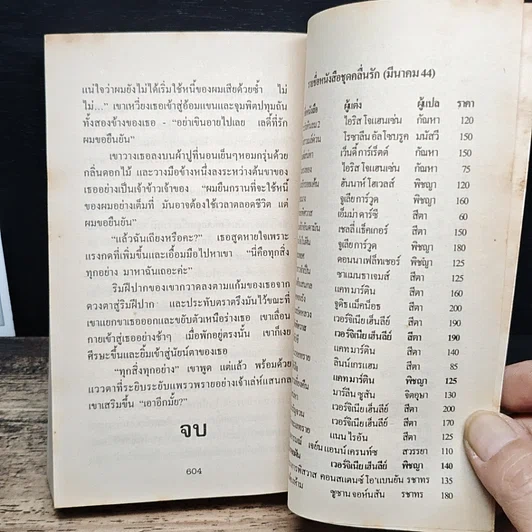 แน่ใจว่าผมยังไม่ได้เริ่มใช้หนี้ของผมเสียด้วยซ้ำ ไม่
ไม่…" เขาเหวี่ยงเธอเข้าสู่อ้อมแขนและจุมพิตปทุมถัน
ทั้งสองข้างของเธอ - "อย่าเขินอายไปเลย เลดี้ที่รัก
ผมขอยืนยัน"
เขาวางเธอลงบนผ้าปูที่นอนเย็นๆหอมกรุ่นด้วย
กลิ่นดอกไม้ และวางมือข้างหนึ่งลงระหว่างต้นขาของ
เธออย่างเป็นเจ้าข้าวเจ้าของ "ผมยืนกรานที่จะใช้หนี้
ของผมอย่างเต็มที่ มันอาจต้องใช้เวลาตลอดชีวิต แต่
ผมขอยืนยัน"
"แล้วฉันเถียงหรือคะ?" เธอสูดหายใจเพราะ
แรงกดที่เพิ่มขึ้นและเอื้อมมือไปหาเขา "นี่คือทุกสิ่ง
ทุกอย่าง มาหาฉันเถอะค่ะ"
ริมฝีปากของเขากวาดลงตามแก้มของเธอจาก
ดวงตาสู่ริมฝีปาก และประทับตราตรึงมันไว้ขณะที่
เขาแยกขาเธอออกและขยับตัวเหนือร่างเธอ เขาเลื่อน
กายเข้าสู่อย่างช้าๆ เมื่อพักอยู่ตรงนั้น เขาก็เงย
ศีรษะขึ้นและยิ้มเข้าสู่นัยน์ตาของเธอ
"ทุกสิ่งทุกอย่าง" เขาพูด แต่แล้ว พร้อมด้วย
แววตาที่ระยิบระยับแพรวพรายอย่างเจ้าเล่ห์แสนกล
เขาเสริมขึ้น "เอาอีกมั้ย?"
จบ
604
รายชื่อหนังสือชุดคลื่นรัก (มีนาคม 44)
ผู้แต่ง ผู้แปล ราคา
ไอริส โจแฮนเซ่น กัณหา 120
โรซาลีน อัลโซบรูค มนัสวี 150
เว็นดี้ การ์เร็ตต์ กัณหา 150
ไอริส โจแฮนเซ่น กัณหา 75
ฮันนาห์ โฮเวลส์ พิชญา 120
จูเลีย การ์วูด พิชญา 160
เอ็มม่า ดาร์ซี สีตา 60
เชลลี่ แธ็คเกอร์ สีตา 150
จูเลีย การ์วูด พิชญา 180
ดอนนา เฟล็ทเชอร์ พิชญา 125
ซาแมนธา เจมส์ สีตา 125
แคท มาร์ติน สีตา 160
จูดิธ แม็คน็อธ สีตา 250
เวอร์จิเนีย เฮ็นลีย์ สีตา 190
เวอร์จิเนีย เฮ็นลีย์ สีตา 190
แคท มาร์ติน สีตา 140
ลินน์ เกรแฮม สีตา 85
แคท มาร์ติน พิชญา 125
มาร์ลีน ซูสัน จิตอุษา 130
เวอร์จิเนีย เฮ็นลีย์ สีตา 200
เวอร์จิเนีย เฮ็นลีย์ สีตา 170
แนน ไรอัน สีตา 125
เจย์น แอนน์ เครนทซ์ สวรรยา 110
เวอร์จิเนีย เฮ็นลีย์ พิชญา 140
คอนสแตนซ์ โอ'แบนยัน รชาทร 135
ซูซาน จอห์นสัน รชาทร 180